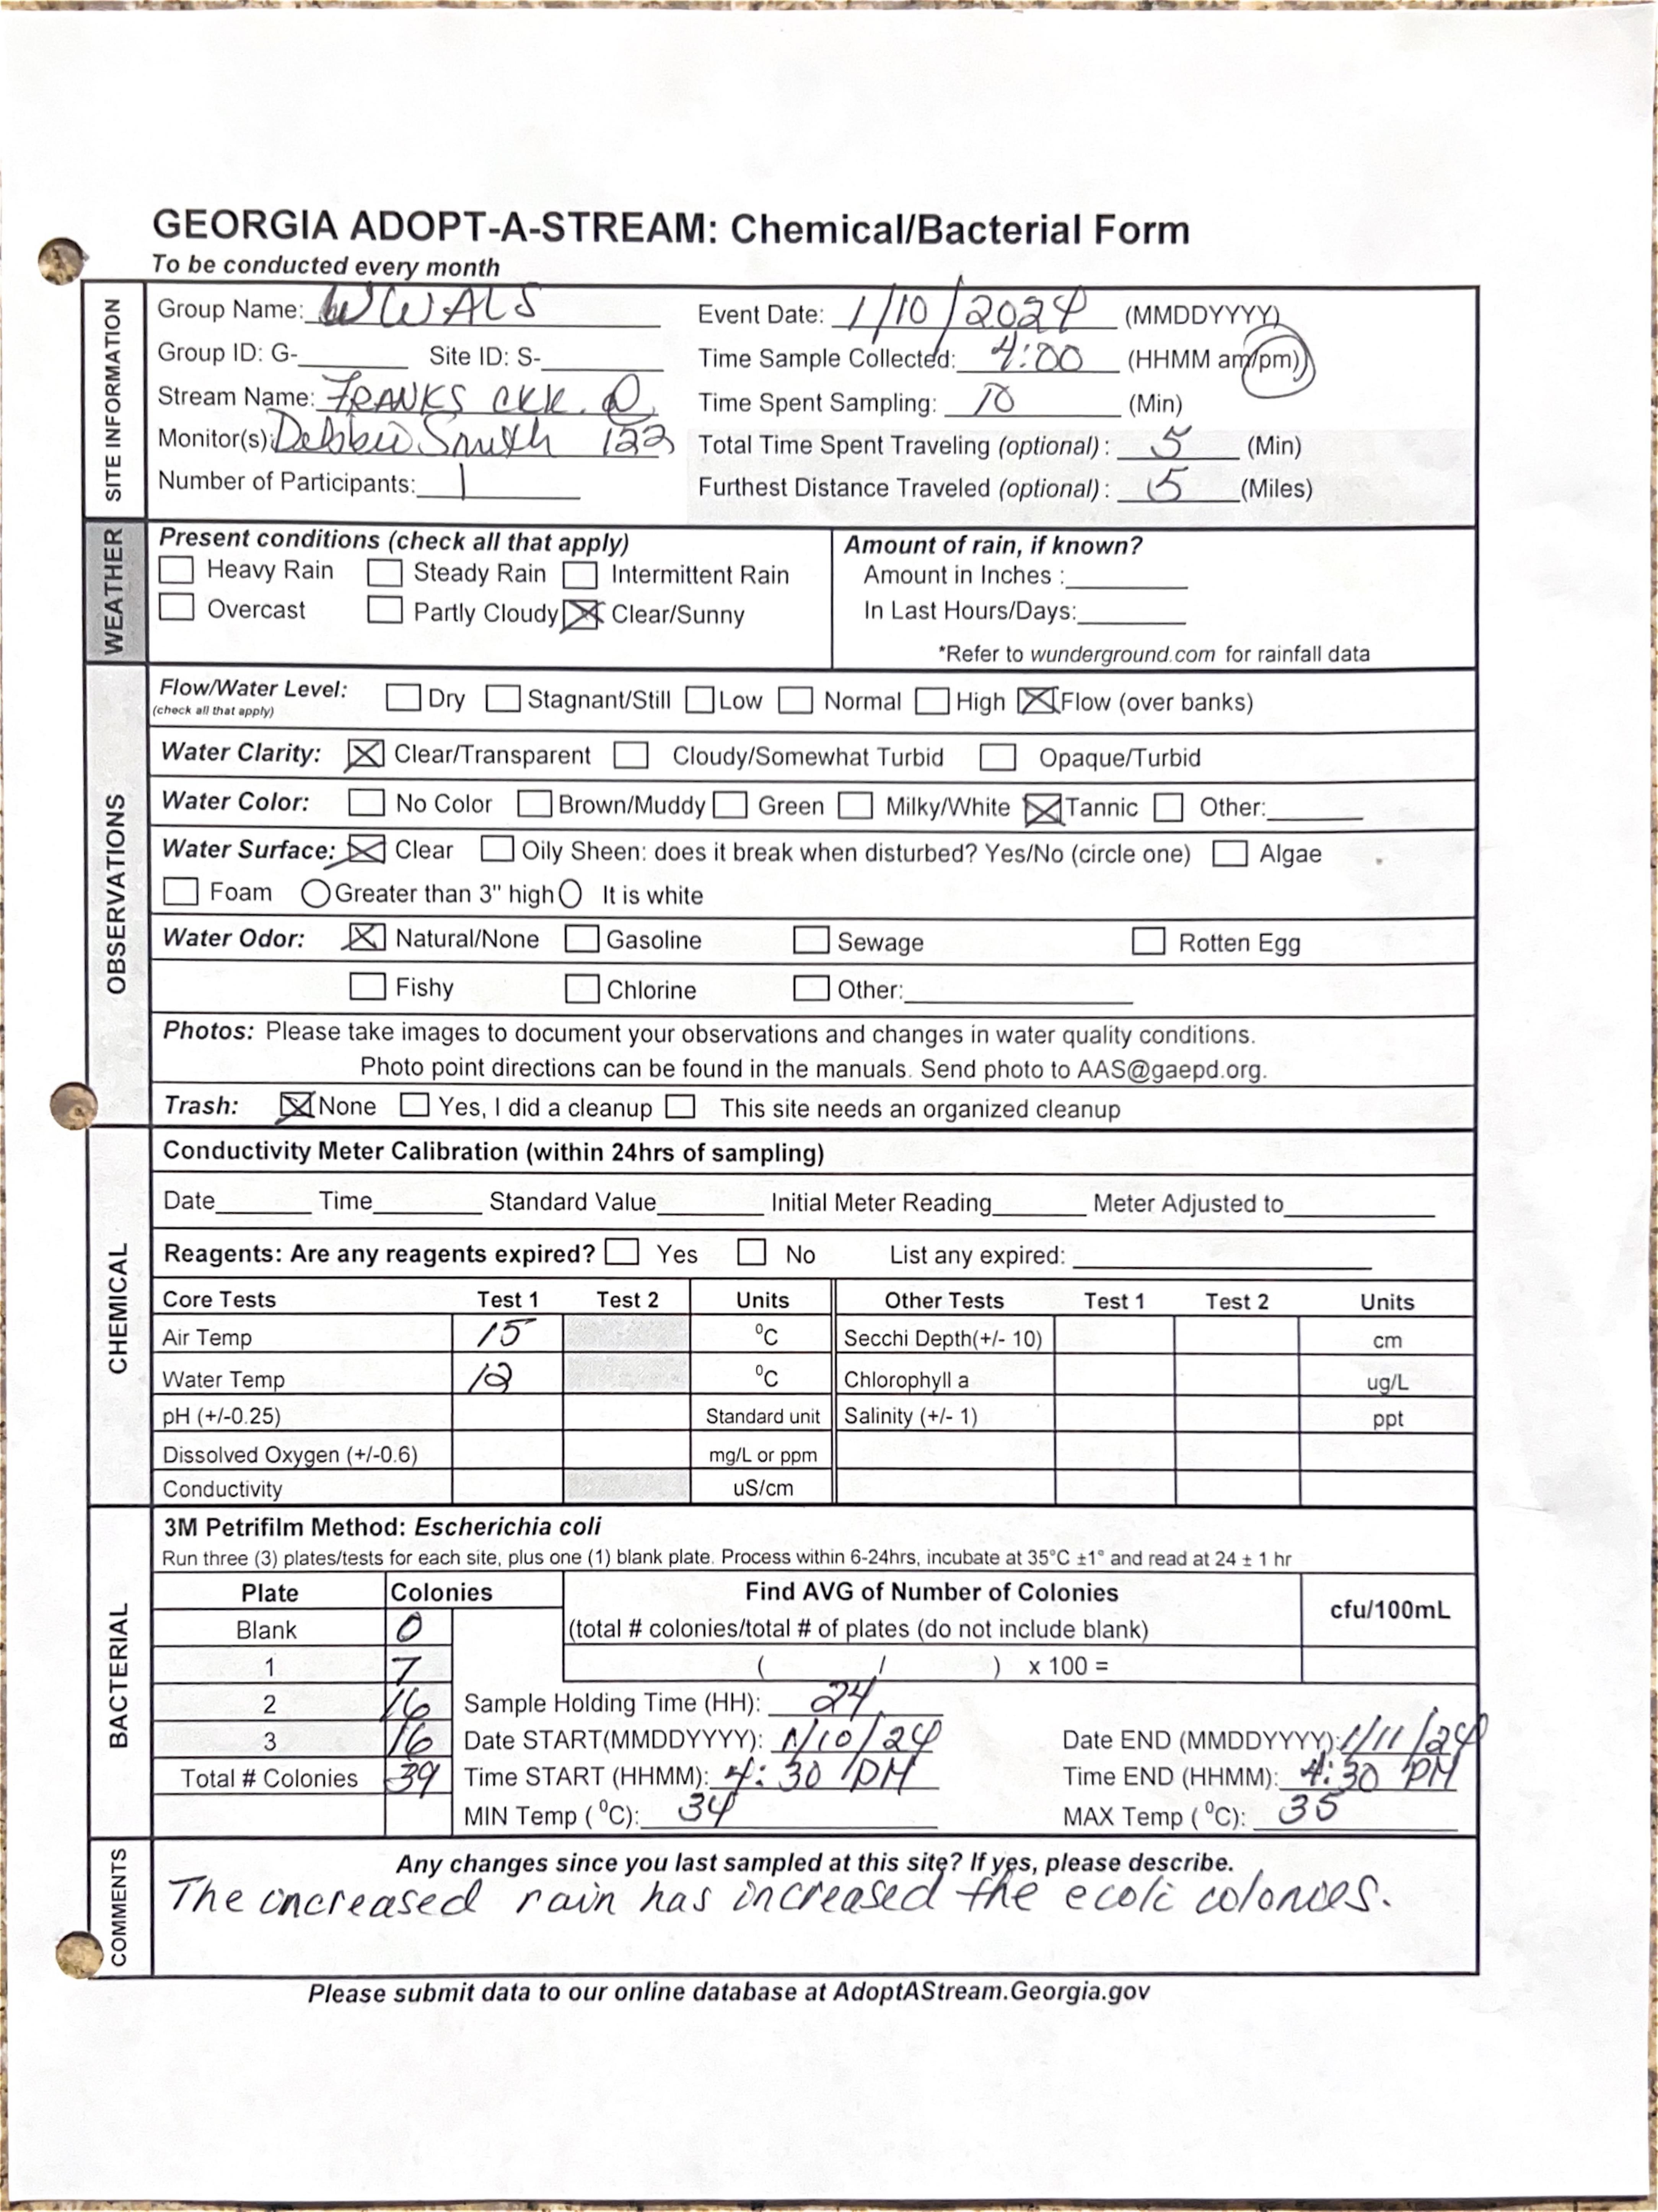 GEORGIA ADOPT-A-STREAM: Chemical/Bacterial Form
To be conducted every month
SITE INFORMATION
Group Name: WWALS
Event Date: 1/10/2024 (MMDDYYYY)
Group ID: G-________ Site ID: S-________
Time Sample Collected: 4:00 (HHMM am/pm)
Stream Name: FRANKS CKK. @
Time Spent Sampling: 10 (Min)
Monitor(s): Debbie Smith 122
Total Time Spent Traveling (optional) : 5 (Min)
Number of Participants: 1
Furthest Distance Traveled (optional) : 5 (Miles)
WEATHER
Present conditions (check all that apply)
☐ Heavy Rain ☐ Steady Rain ☐ Intermittent Rain
☐ Overcast ☐ Partly Cloudy ☒ Clear/Sunny
Amount of rain, if known?
Amount in Inches :________
In Last Hours/Days:________
*Refer to wunderground.com for rainfall data
OBSERVATIONS
Flow/Water Level: ☐ Dry ☐ Stagnant/Still ☐ Low ☐ Normal ☐ High ☒ Flow (over banks)
(check all that apply)
Water Clarity: ☒ Clear/Transparent ☐ Cloudy/Somewhat Turbid ☐ Opaque/Turbid
Water Color: ☐ No Color ☐ Brown/Muddy ☐ Green ☐ Milky/White ☒ Tannic ☐ Other:________
Water Surface: ☒ Clear ☐ Oily Sheen: does it break when disturbed? Yes/No (circle one) ☐ Algae
☐ Foam ○ Greater than 3" high ○ It is white
Water Odor: ☒ Natural/None ☐ Gasoline ☐ Sewage ☐ Rotten Egg
☐ Fishy ☐ Chlorine ☐ Other:________
Photos: Please take images to document your observations and changes in water quality conditions.
Photo point directions can be found in the manuals. Send photo to AAS@gaepd.org.
Trash: ☒ None ☐ Yes, I did a cleanup ☐ This site needs an organized cleanup
CHEMICAL
Conductivity Meter Calibration (within 24hrs of sampling)
Date________ Time________ Standard Value________ Initial Meter Reading________ Meter Adjusted to________
Reagents: Are any reagents expired? ☐ Yes ☐ No List any expired: ________
Core Tests Test 1 Test 2 Units Other Tests Test 1 Test 2 Units
Air Temp 15 ⁰C Secchi Depth(+/- 10) cm
Water Temp 12 ⁰C Chlorophyll a ug/L
pH (+/-0.25) Standard unit Salinity (+/- 1) ppt
Dissolved Oxygen (+/-0.6) mg/L or ppm
Conductivity uS/cm
BACTERIAL
3M Petrifilm Method: Escherichia coli
Run three (3) plates/tests for each site, plus one (1) blank plate. Process within 6-24hrs, incubate at 35°C ±1° and read at 24 ± 1 hr
Plate Colonies Find AVG of Number of Colonies cfu/100mL
Blank 0 (total # colonies/total # of plates (do not include blank)
1 7 ( / ) x 100 =
2 16 Sample Holding Time (HH): 24
3 16 Date START(MMDDYYYY): 1/10/24 Date END (MMDDYYYY): 1/11/24
Total # Colonies 39 Time START (HHMM): 4:30 PM Time END (HHMM): 4:30 PM
MIN Temp (⁰C): 34 MAX Temp (⁰C): 35
COMMENTS
Any changes since you last sampled at this site? If yes, please describe.
The increased rain has increased the ecoli colonies.
Please submit data to our online database at AdoptAStream.Georgia.gov